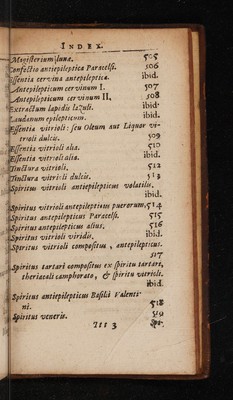 INDEX.
Magisterium lunæ. 505
Confectio antiepileptica Paracelsi. 506
Essentia cervina antepileptica. ibid.
Antepilepticum cervinum I. 507
Antepilepticum cervinum II. 508
Extractum lapidis lazuli. ibid.
Laudanum epilepticum. ibid.
Essentia vitrioli: seu Oleum aut Liquor vi-
trioli dulcis. 509
Essentia vitrioli alia. 510
Essentia vitrioli alia. ibid.
Tinctura vitrioli. 512
Tinctura vitrioli dulcis. 513
Spiritus vitrioli antiepilepticus volatilis,
ibid.
Spiritus vitrioli antepilepticus puerorum. 514
Spiritus antepilepticus Paracelsi. 515
Spiritus antepilepticus alius. 516
Spiritus vitrioli viridis. ibid.
Spiritus vitrioli compositus, antepilepticus.
517
Spiritus tartari compositus ex spiritu tartari,
theriacali camphorato, & spiritu vitrioli.
ibid.
Spiritus antiepilepticus Basilii Valenti
ni. 518
Spiritus veneris.
Iii 3